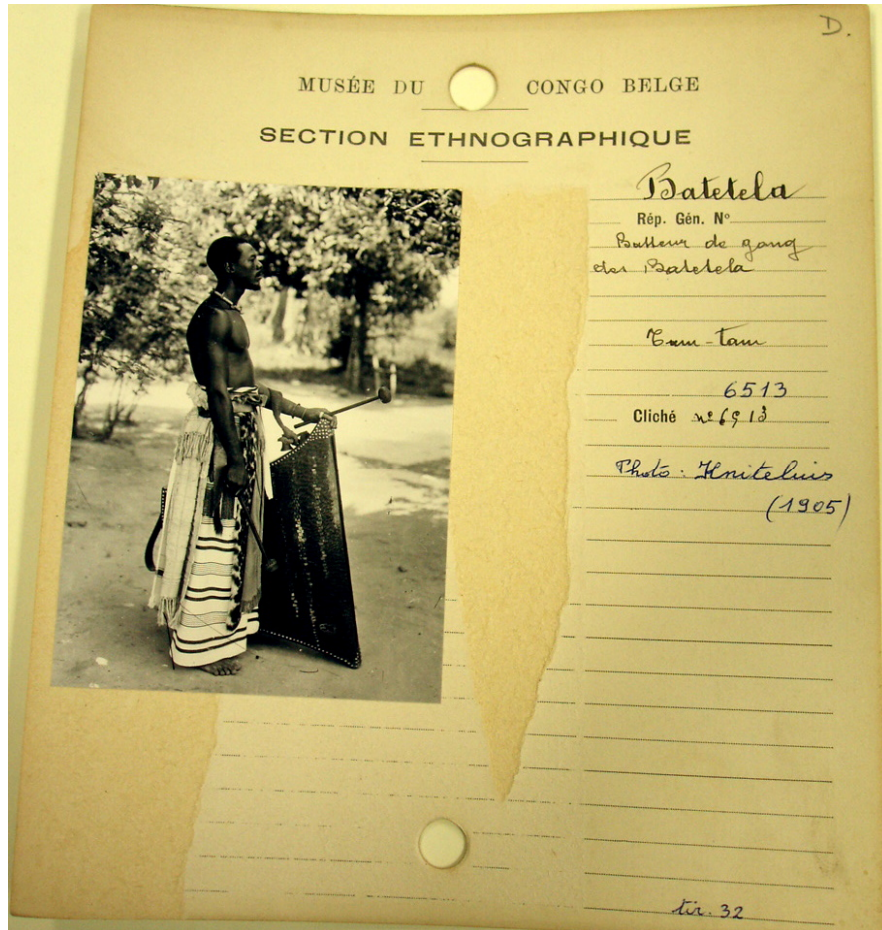 D.
MUSÉE DU CONGO BELGE
SECTION ETHNOGRAPHIQUE
Batetela
Rép. Gén. Nº
Batteur de gong
des Batetela
Tam-tam
6513
Cliché nº 6913
Photo:
(1905)
tir. 32